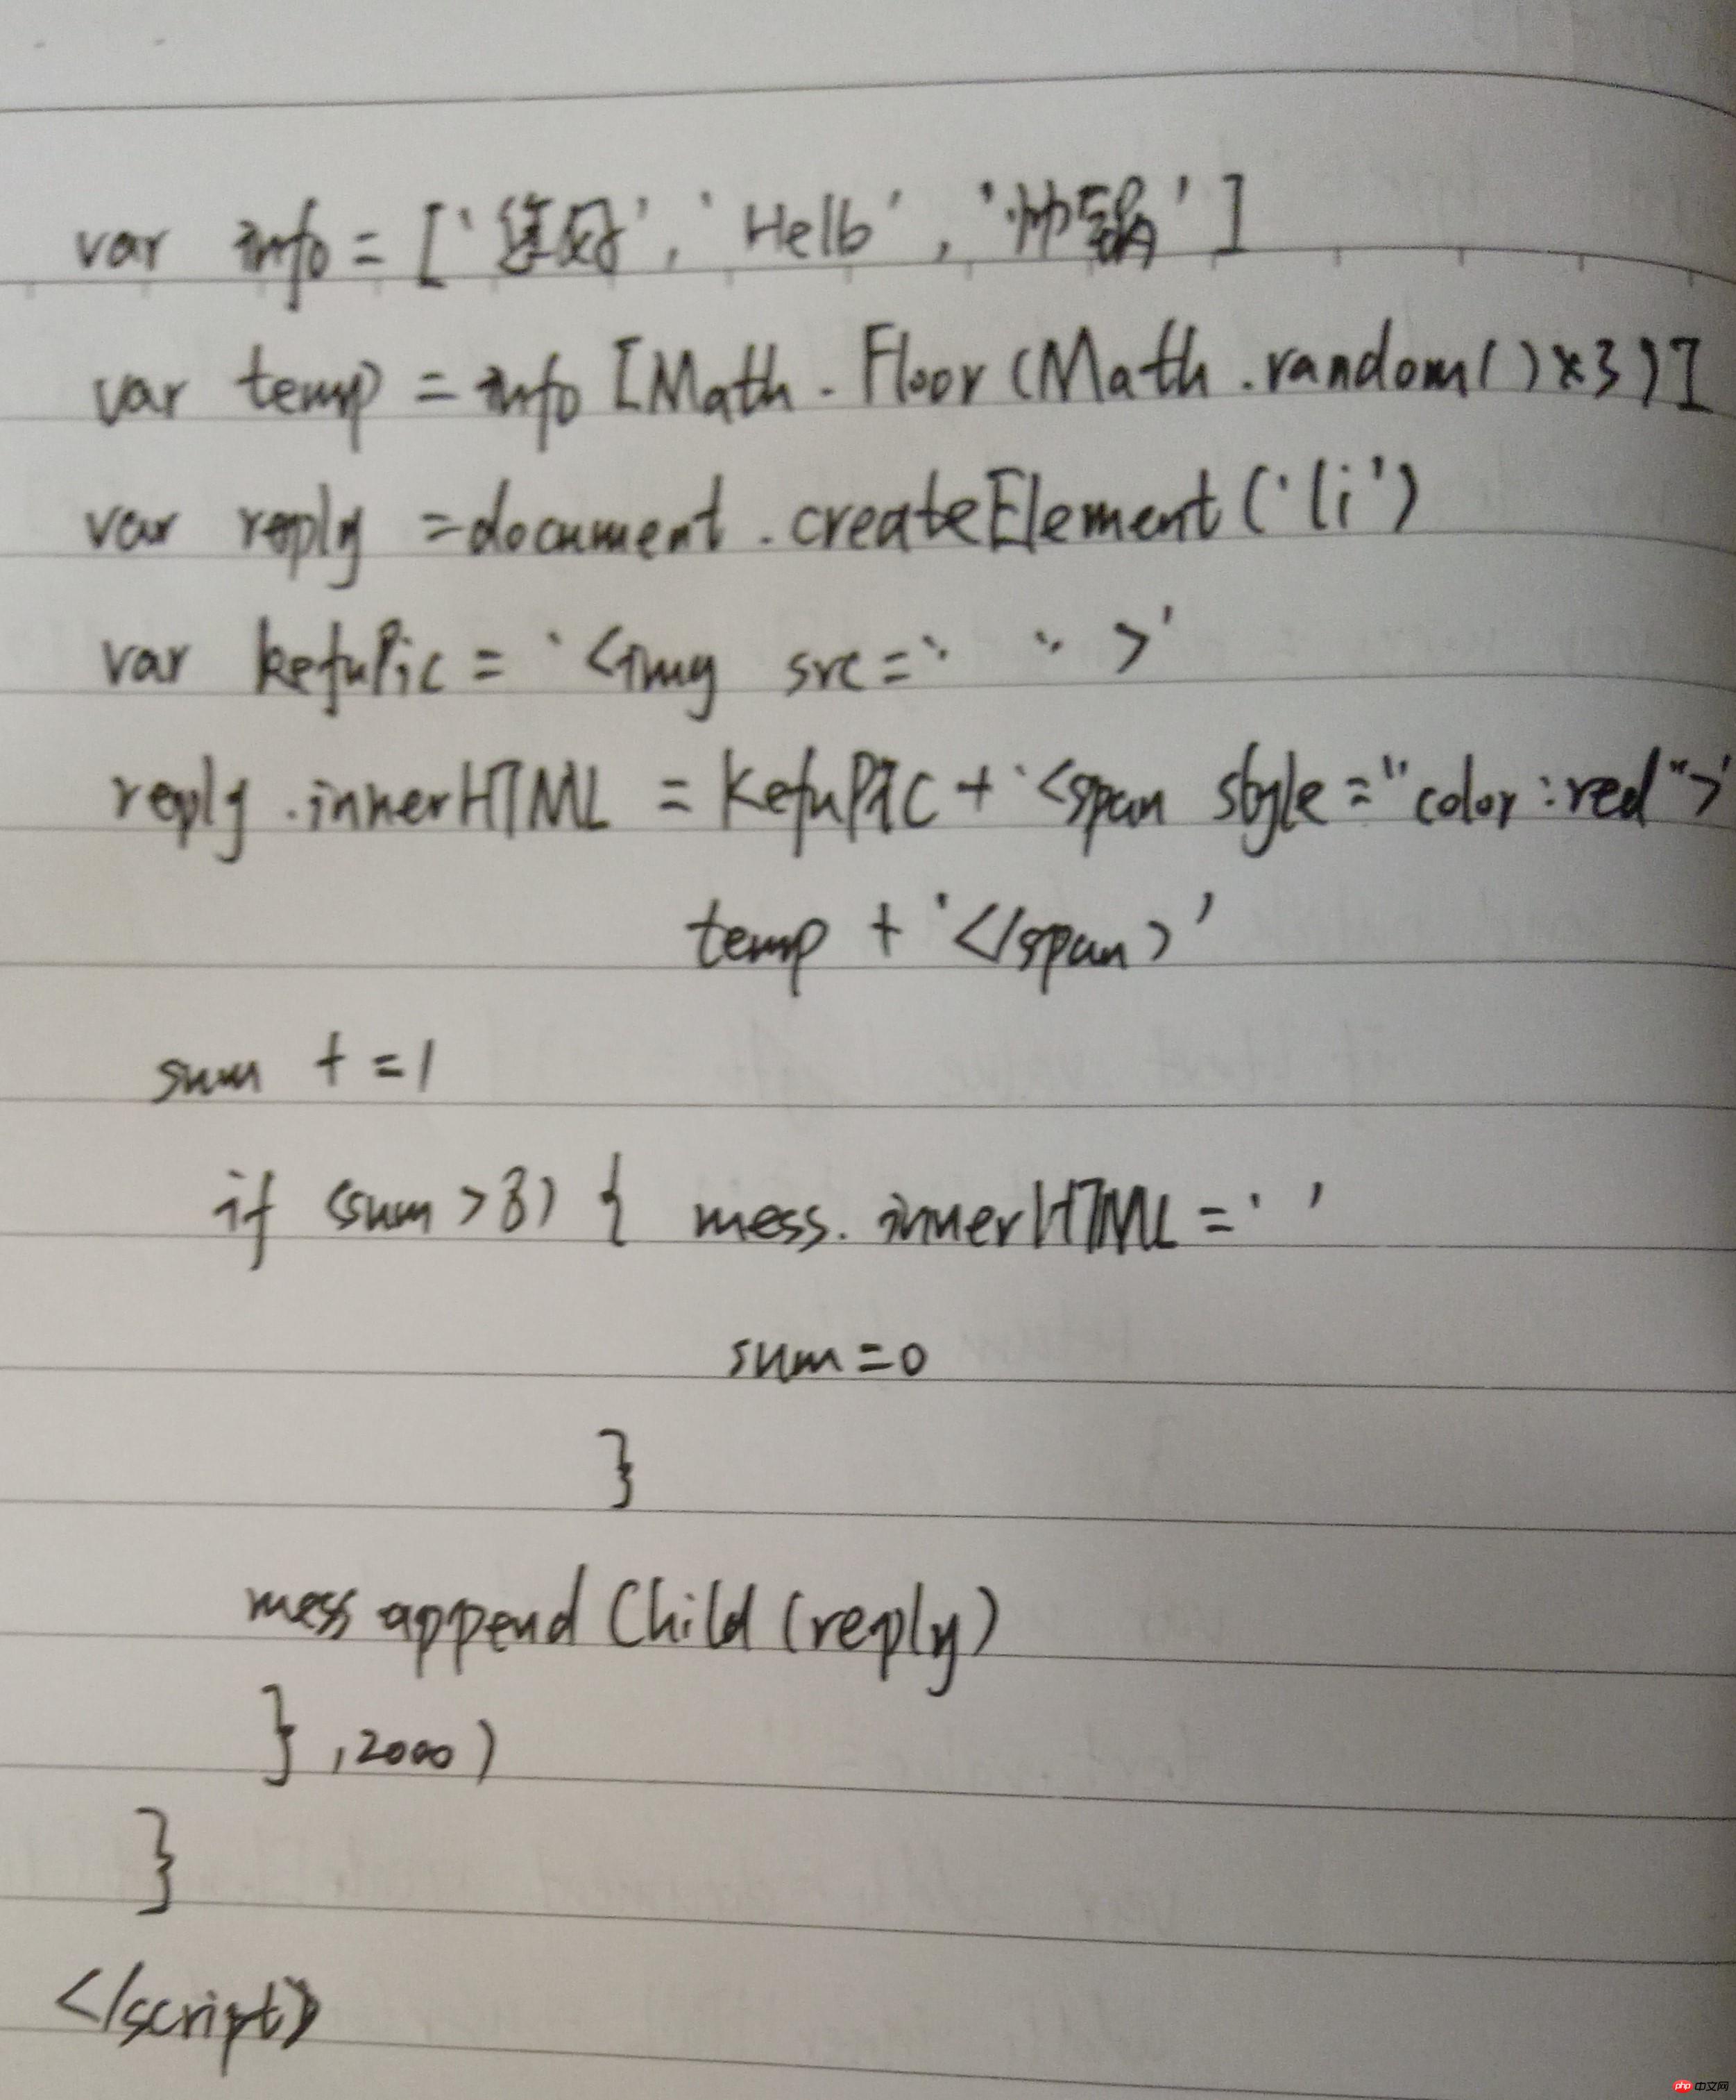 var info = ['您好', 'Hello', '帅锅']
var temp = info [Math. Floor (Math .random()*3)]
var reply =document .createElement('li')
var kefuPic = '<img src=" " >'
reply .innerHTML = KefuPic + '<span style="color:red">'
temp + '</span>'
sum +=1
if (sum >8) { mess. innerHTML = ' '
sum=0
}
mess append Child (reply)
} ,2000)
}
</script>
php 中文网